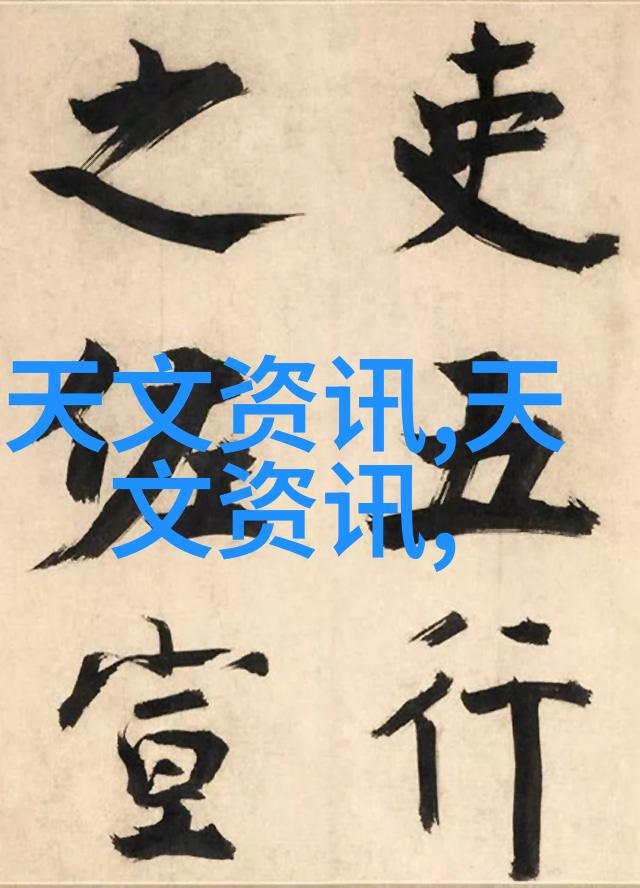 吏五行
之佐宣
天文资讯,天
文资讯,